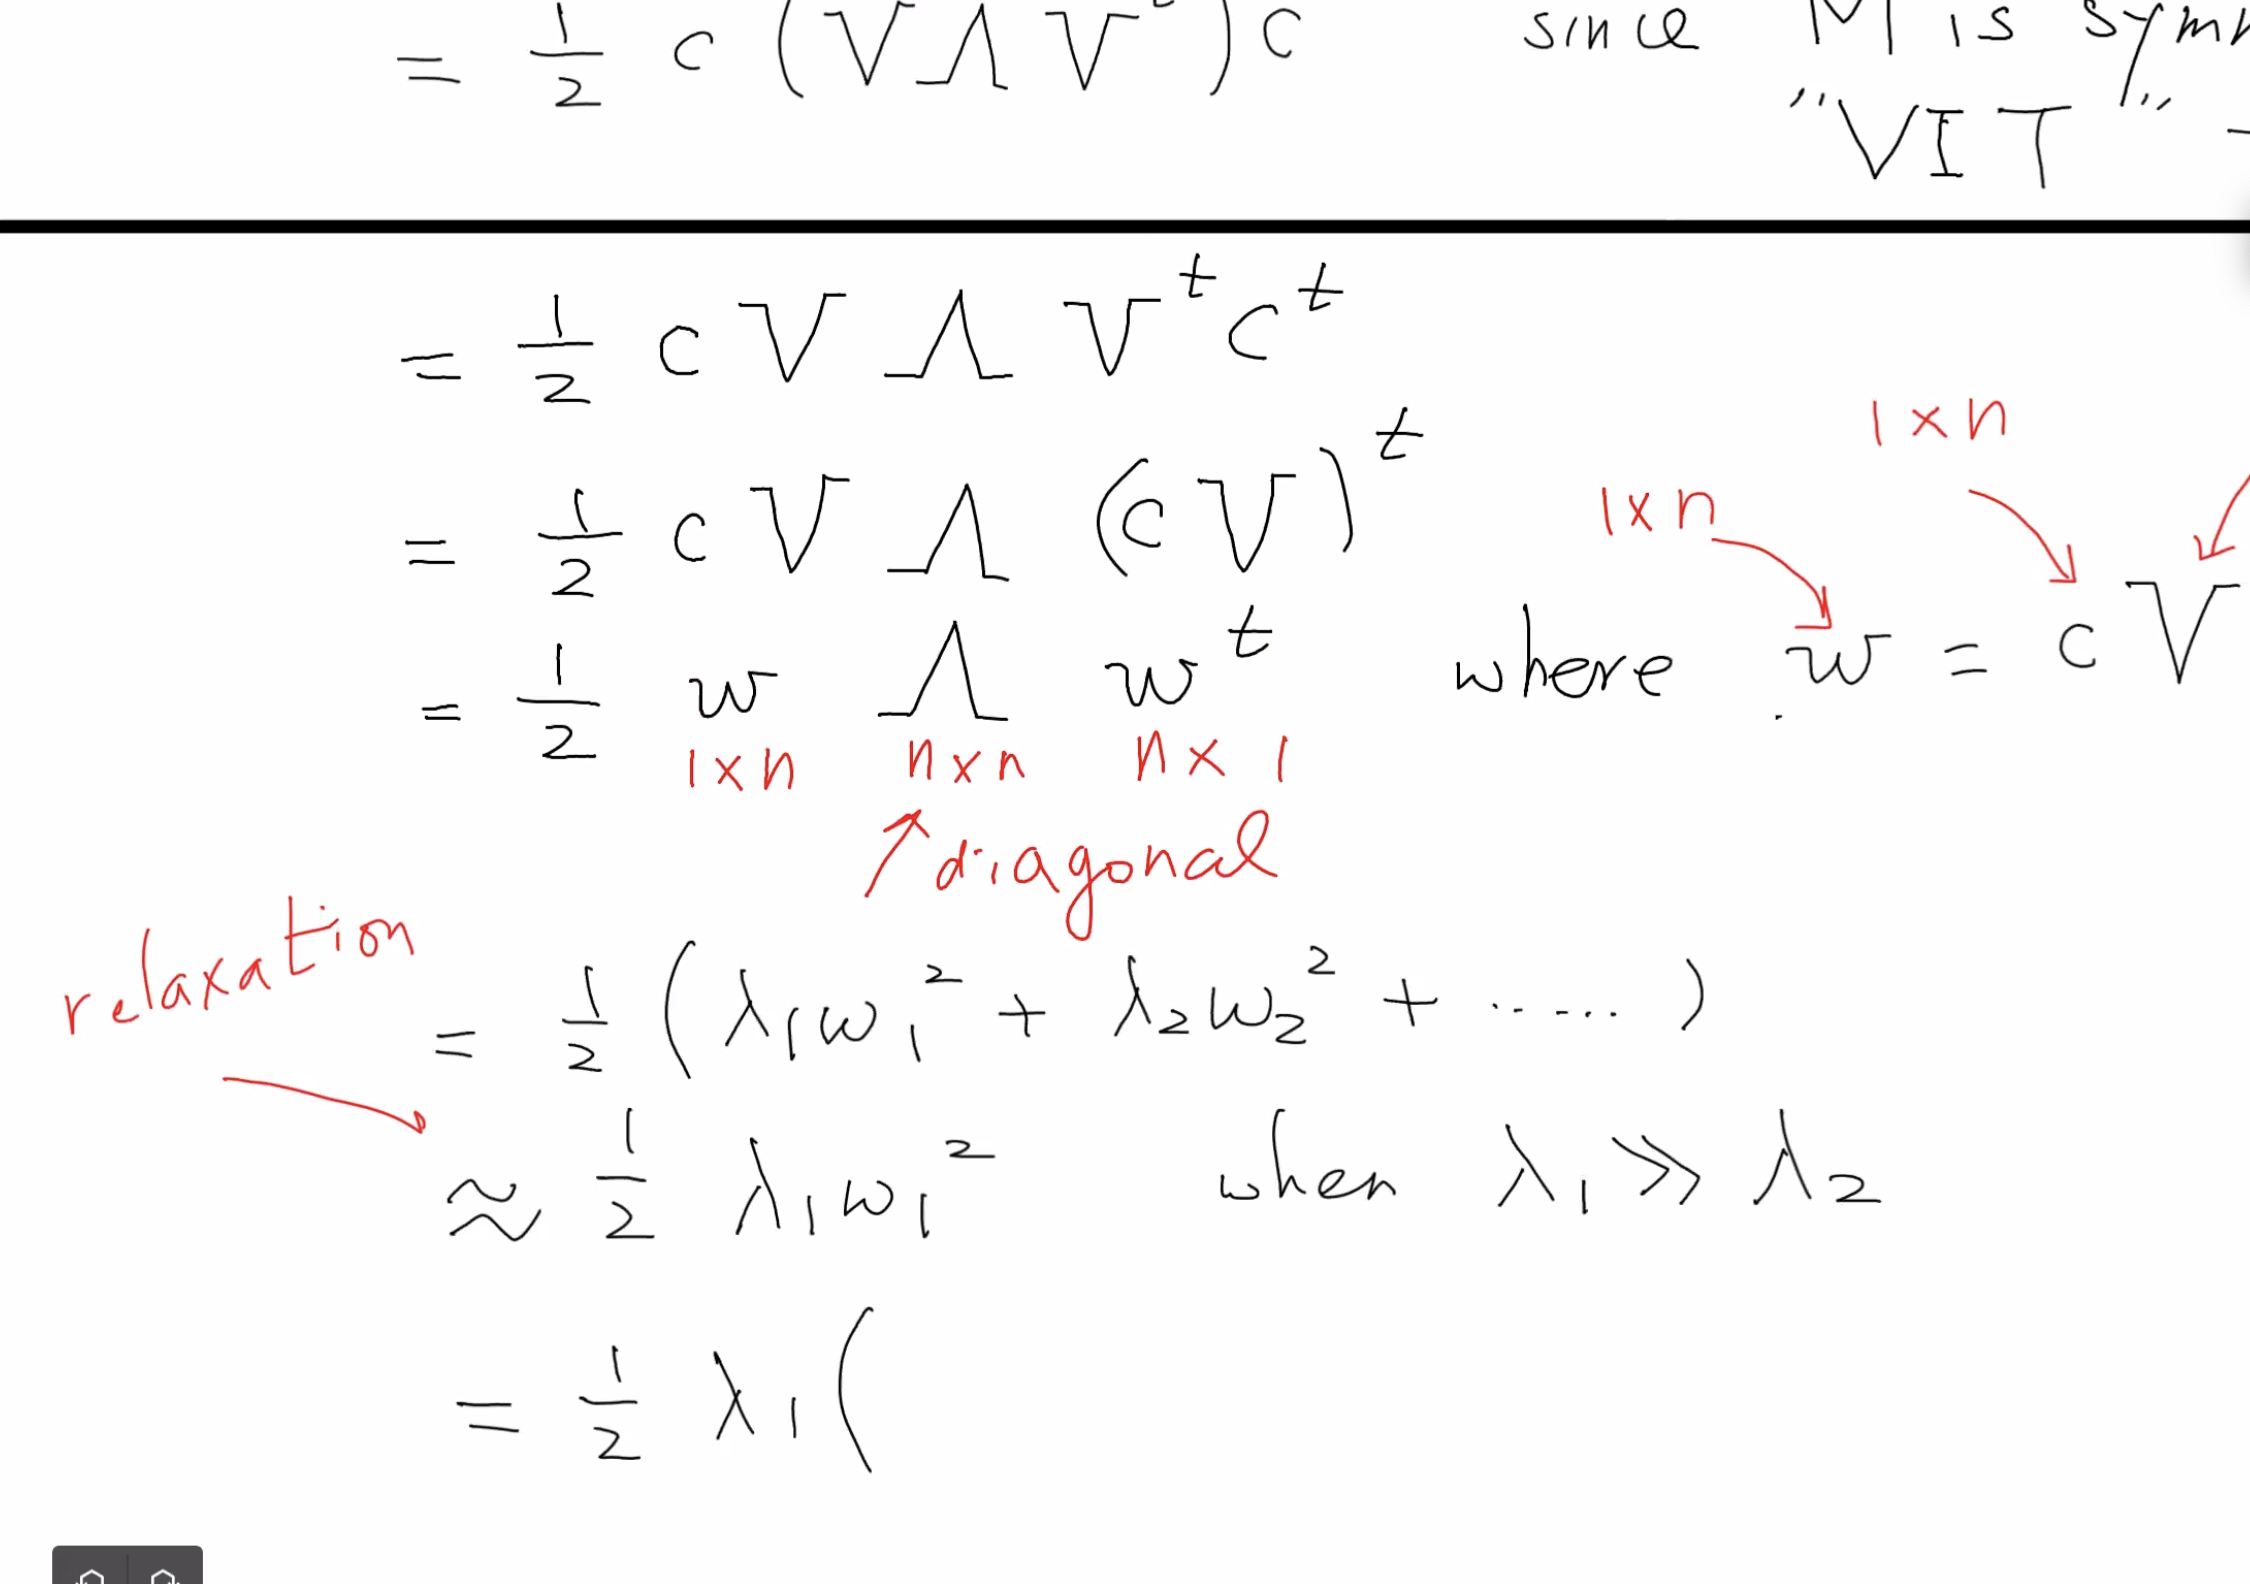 = 1/2 c (V Λ V^t) c since M is
"VIT"
= 1/2 c V Λ V^t c^t
= 1/2 c V Λ (c V)^t
1×n
1×n
= 1/2 w Λ w^t where w = c V
1×n n×n n×1
diagonal
relaxation
= 1/2 (λ₁w₁² + λ₂w₂² + ......)
≈ 1/2 λ₁w₁² when λ₁ ≫ λ₂
= 1/2 λ₁ (